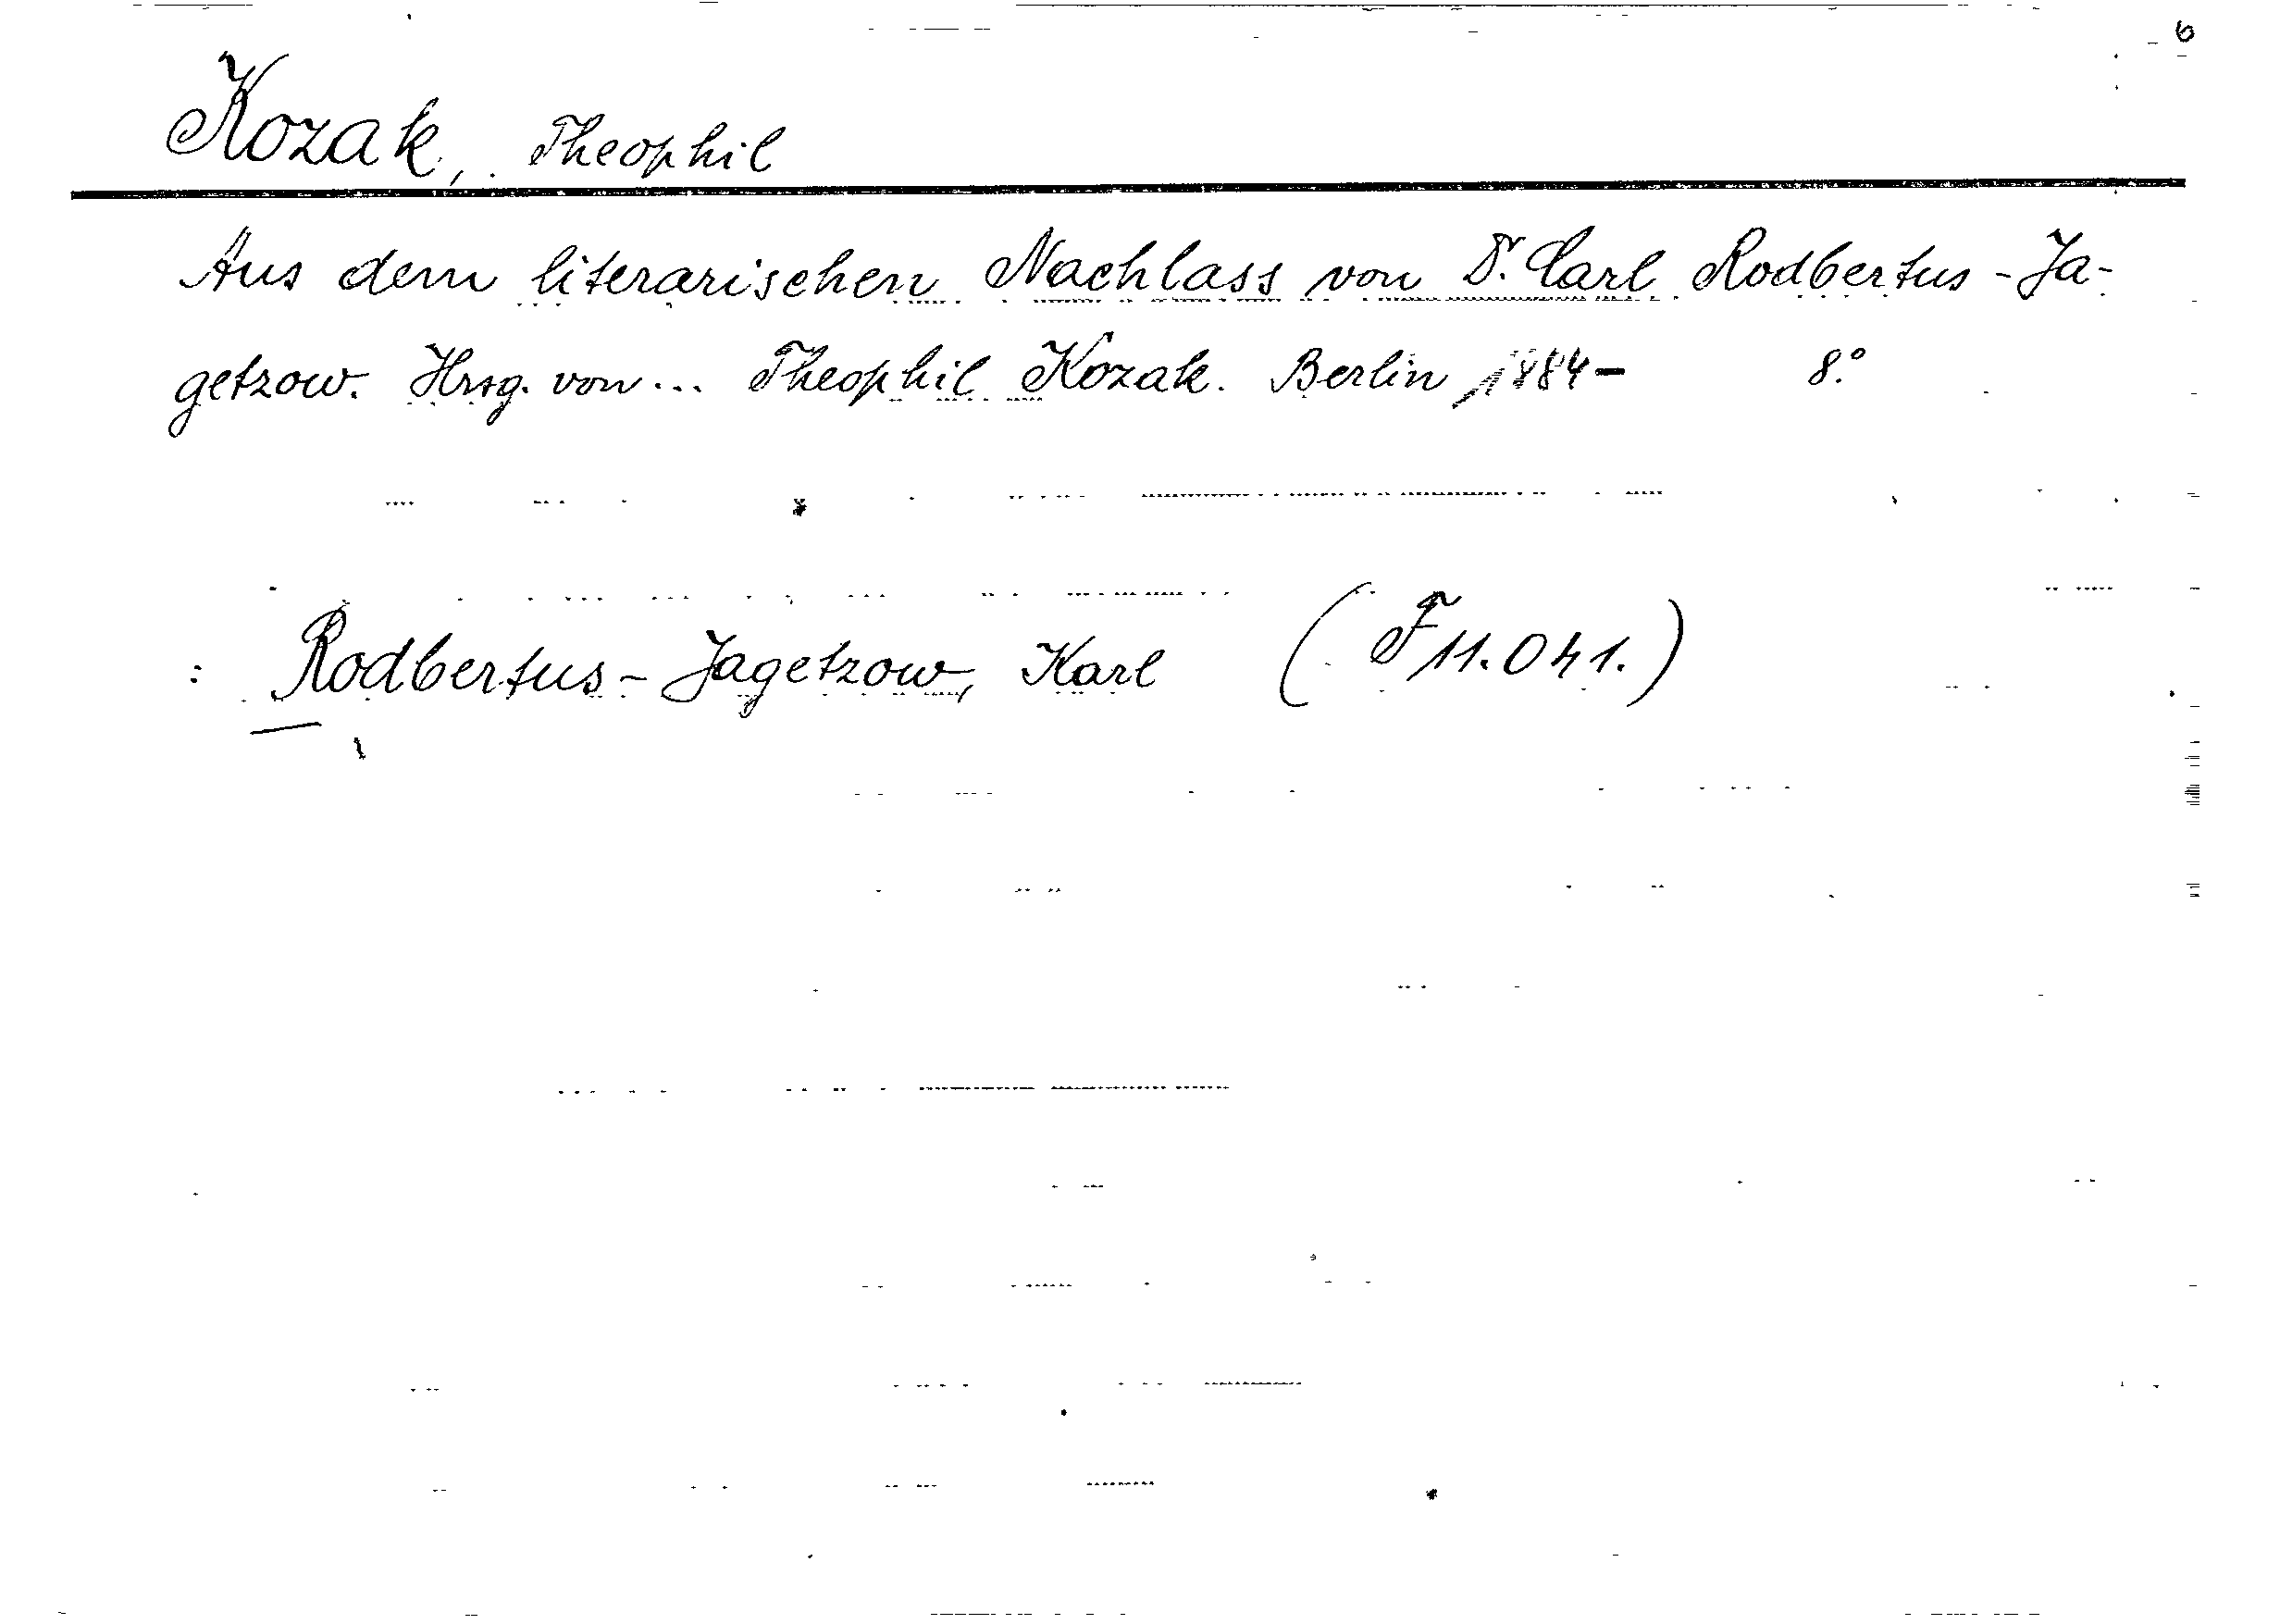 6
Kozak, Theophil
Aus dem literarischen Nachlass von Dr. Carl Rodbertus-Ja-
getzow. Hrsg. von... Theophil Kozak. Berlin 1884- 8.°
: Rodbertus-Jagetzow, Karl (F 11.041.)